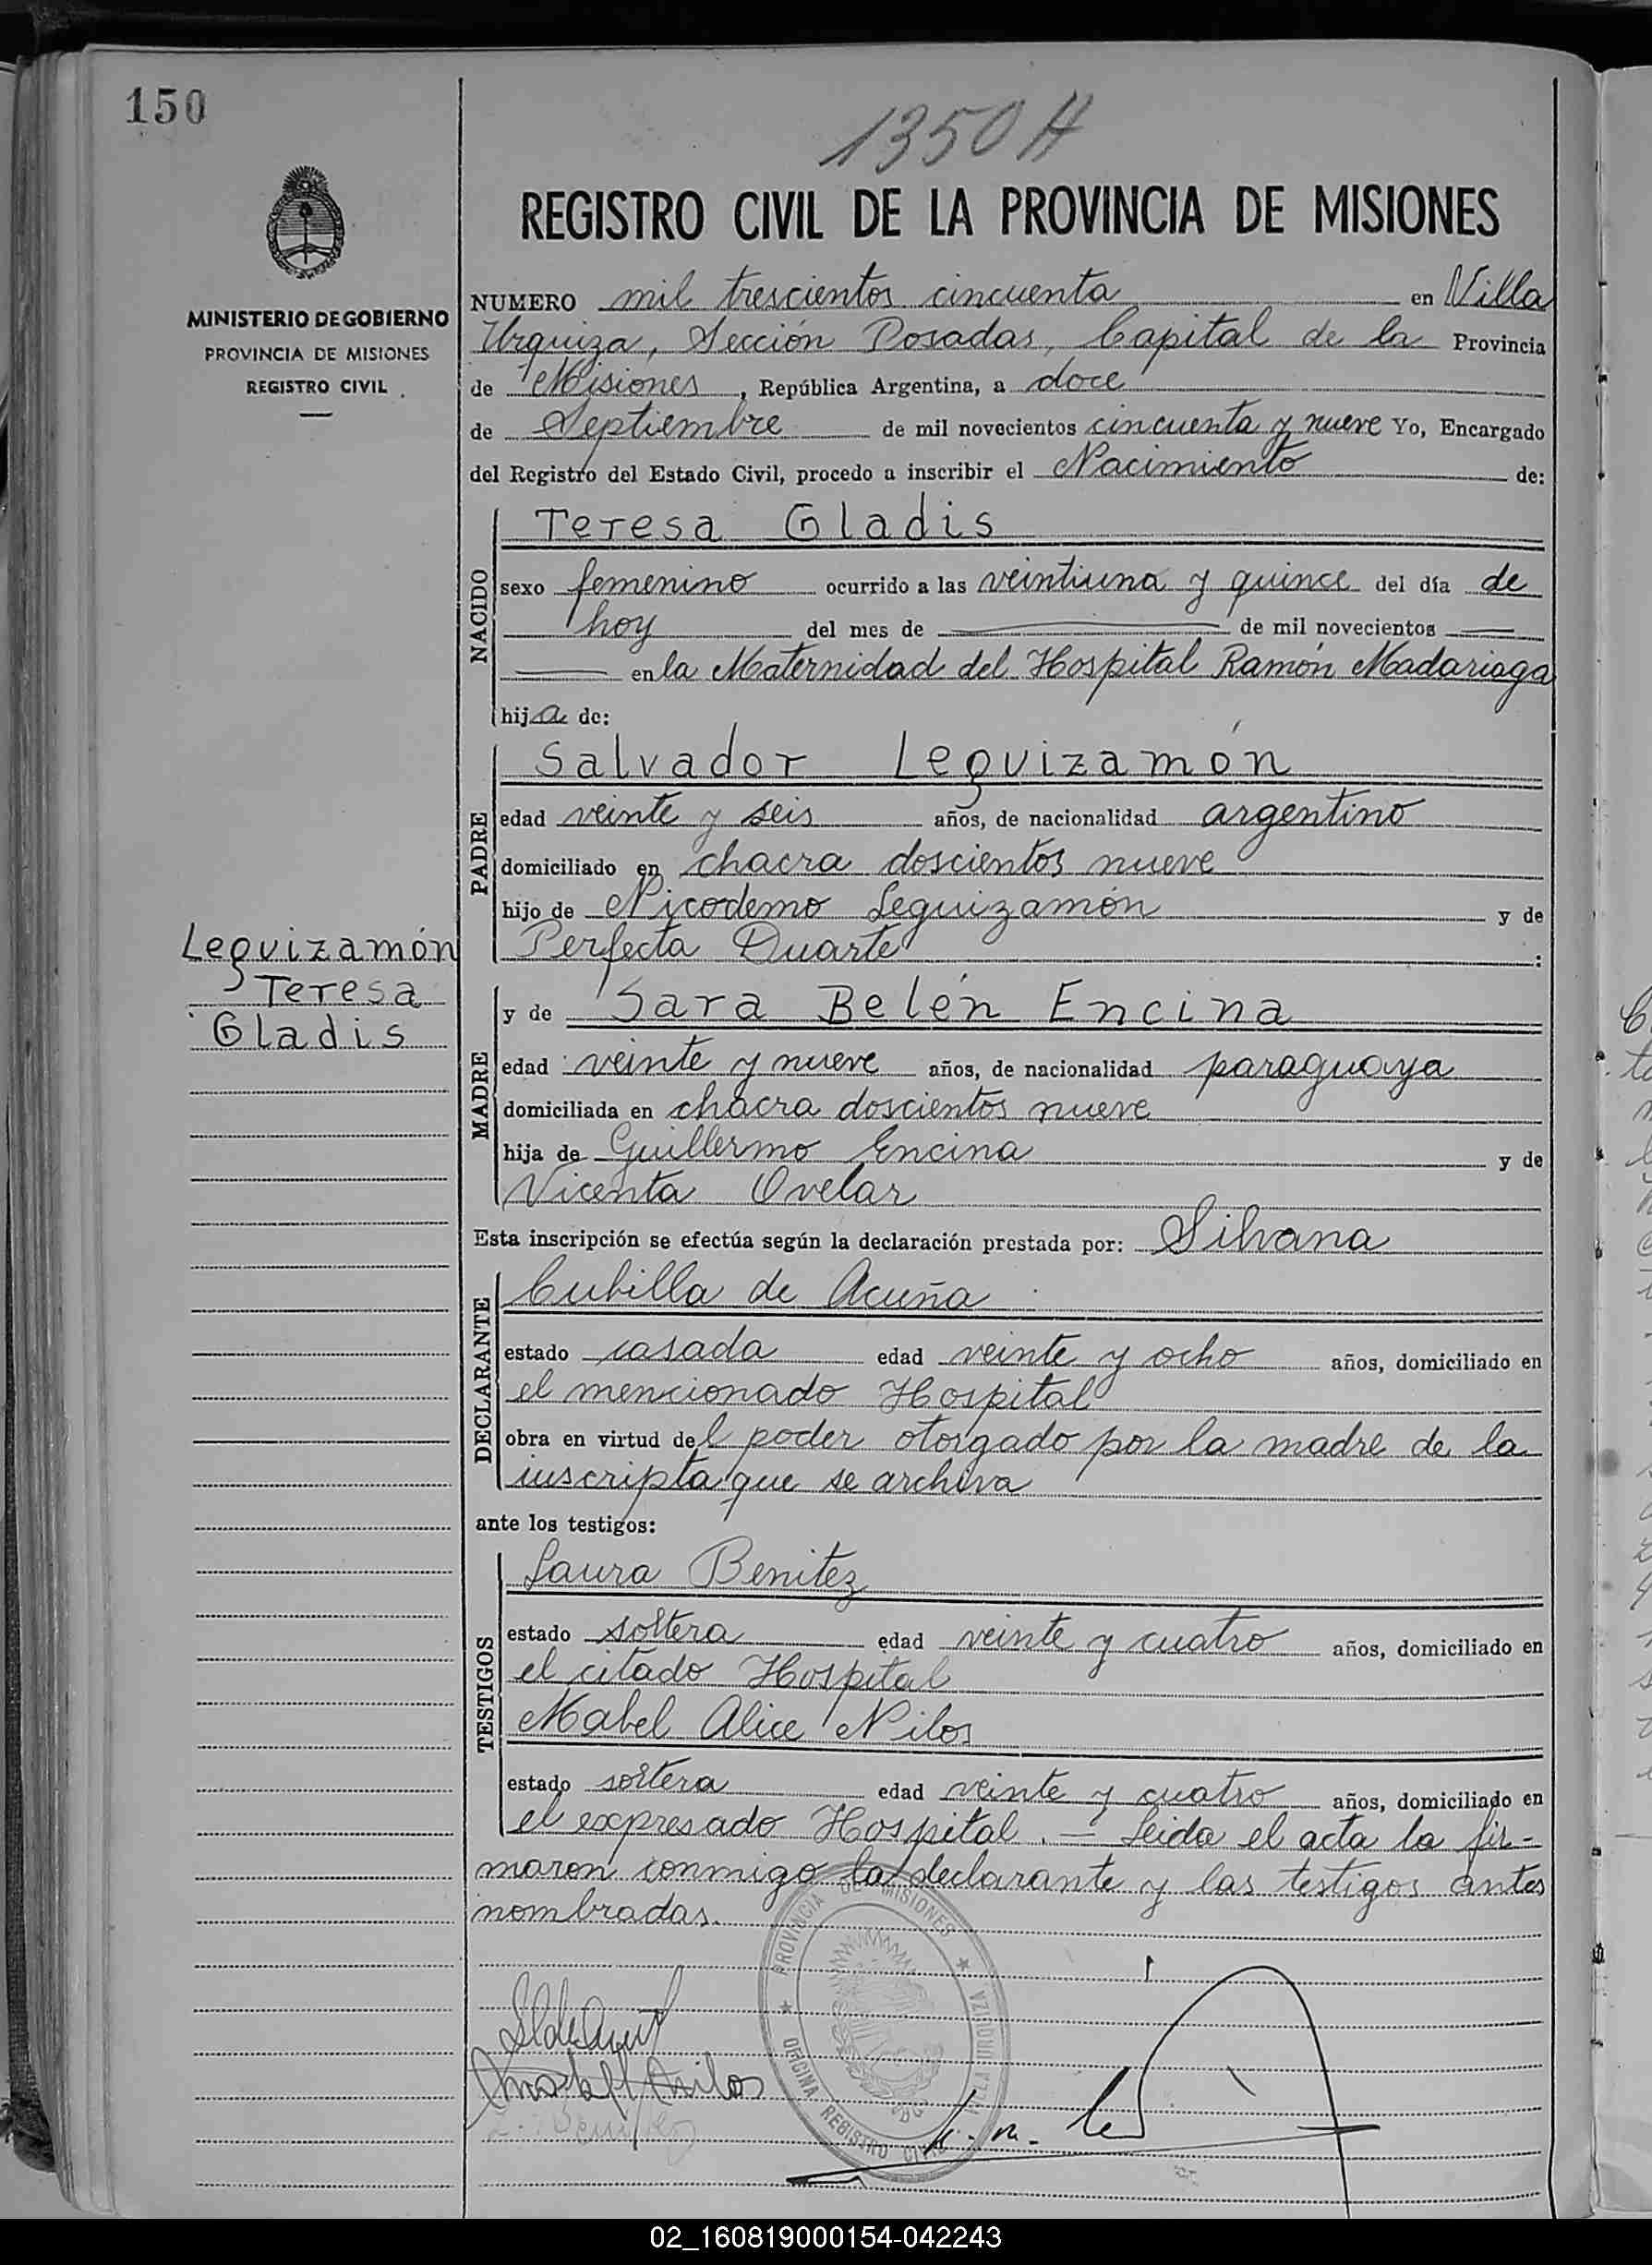 150
1350 H
REGISTRO CIVIL DE LA PROVINCIA DE MISIONES
MINISTERIO DE GOBIERNO
PROVINCIA DE MISIONES
REGISTRO CIVIL
NUMERO mil trescientos cincuenta en Villa
Urquiza, Sección Posadas, Capital de la Provincia
de Misiones, República Argentina, a doce
de Septiembre de mil novecientos cincuenta y nueve Yo, Encargado
del Registro del Estado Civil, procedo a inscribir el Nacimiento de:
NACIDO
Teresa Gladis
sexo femenino ocurrido a las veintiuna y quince del día de
hoy del mes de — de mil novecientos —
— en la Maternidad del Hospital Ramón Madariaga
hija de:
PADRE
Salvador Leguizamón
edad veinte y seis años, de nacionalidad argentino
domiciliado en chacra doscientos nueve
hijo de Nicodemo Leguizamón y de
Perfecta Duarte :
Leguizamón
Teresa
Gladis
MADRE
y de Sara Belén Encina
edad veinte y nueve años, de nacionalidad paraguaya
domiciliada en chacra doscientos nueve
hija de Guillermo Encina y de
Vicenta Ovelar
Esta inscripción se efectúa según la declaración prestada por: Silvana
DECLARANTE
Cubilla de Acuña
estado casada edad veinte y ocho años, domiciliado en
el mencionado Hospital
obra en virtud del poder otorgado por la madre de la
inscripta que se archiva
ante los testigos:
TESTIGOS
Laura Benitez
estado soltera edad veinte y cuatro años, domiciliado en
el citado Hospital
Mabel Alice Nilos
estado soltera edad veinte y cuatro años, domiciliado en
el expresado Hospital. — Leida el acta la fir-
maron conmigo la declarante y las testigos antes
nombradas.
PROVINCIA DE MISIONES
OFICINA REGISTRO CIVIL
VILLA URQUIZA
02_160819000154-042243